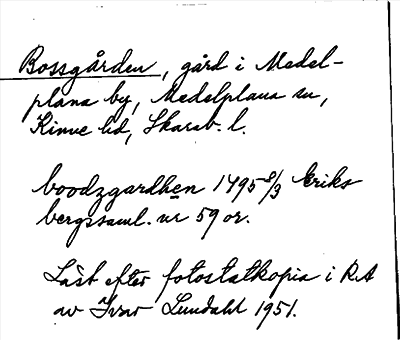 Bossgården, gård i Medel-
plana by, Medelplana sn,
Kinne hd, Skarab. l.
boodzgardhen 1495 8/3 Eriks
bergssaml. nr 59 or.
Läst efter fotostatkopia i RA
av Ivar Lundahl 1951.